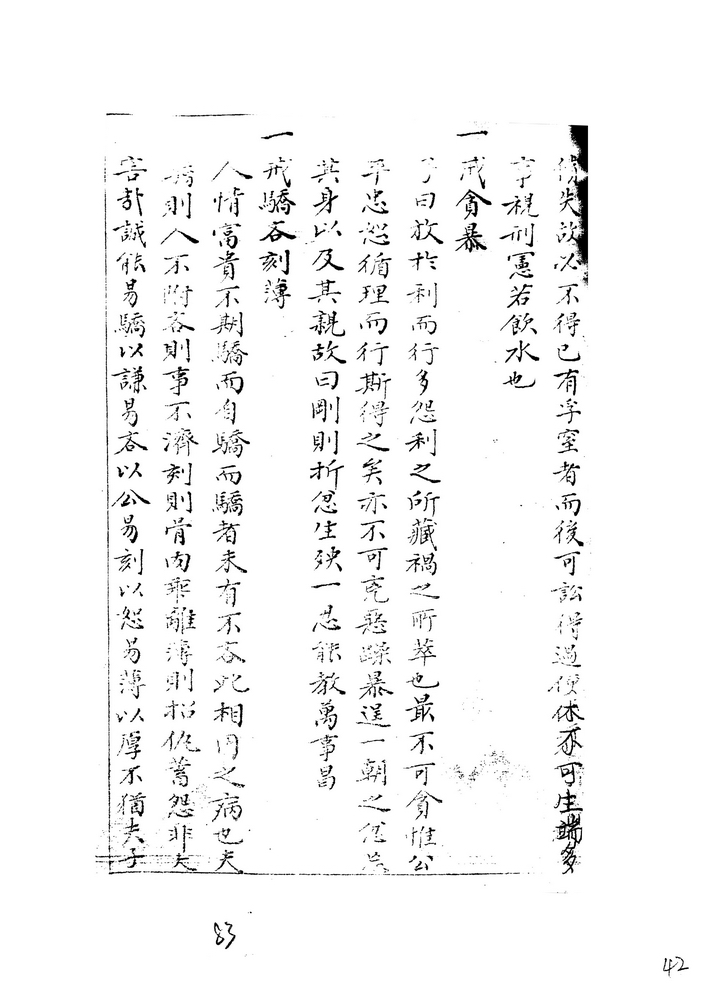 失故必不得已有孚窒者而後可訟得過便休不可生端多
事視刑憲若飲水也
一 戒貪暴
曰放於利而行多怨利之所藏禍之所萃也最不可貪惟公
平忠恕循理而行斯得之矣亦不可兇惡躁暴逞一朝之忿忘
其身以及其親故曰剛則折忿生殃一忍能教萬事昌
一 戒驕吝刻薄
人情富貴不期驕而自驕而驕者未有不吝此相因之病也夫
驕則人不附吝則事不濟刻則骨肉乖離薄則招仇蓄怨非夫
害哉誠能易驕以謙易吝以公易刻以恕易薄以厚不猶夫子
83
42